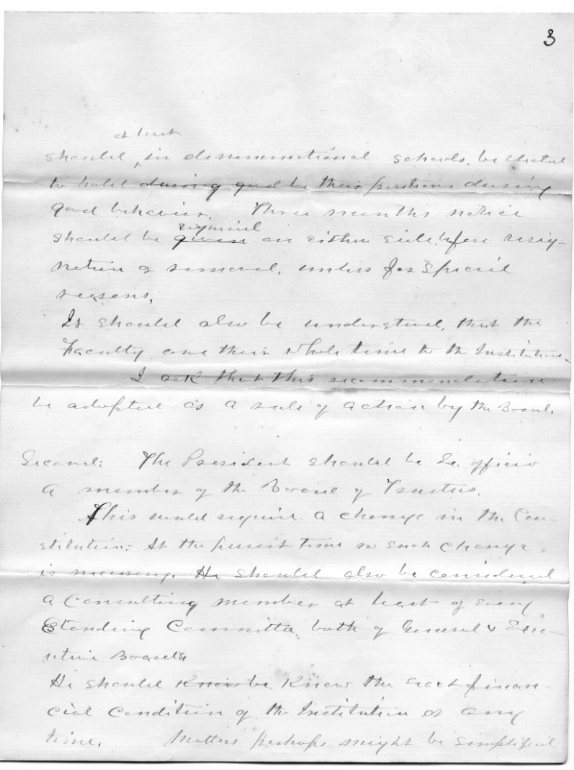 3
at least
should, in denominational schools, be elected
to hold during good be their positions during
good behavior. Three months notice
required
should be given on either side before resig-
nation or removal, unless for special
reasons.
It should also be understood, that the
Faculty owe their whole time to the Institution.
I ask that this recommendation
be adopted as a rule of action by the Board.
Second: The President should be Ex officio
a member of the Board of Trustees.
This would require a change in the Con-
stitution: At the present time no such change
is necessary. He should also be considered
a Consulting member at least of every
Standing Committee, both of General & Exec-
utive Boards
He should Know be Know the exact finan-
cial condition of the Institution at any
time. Matters perhaps might be simplified